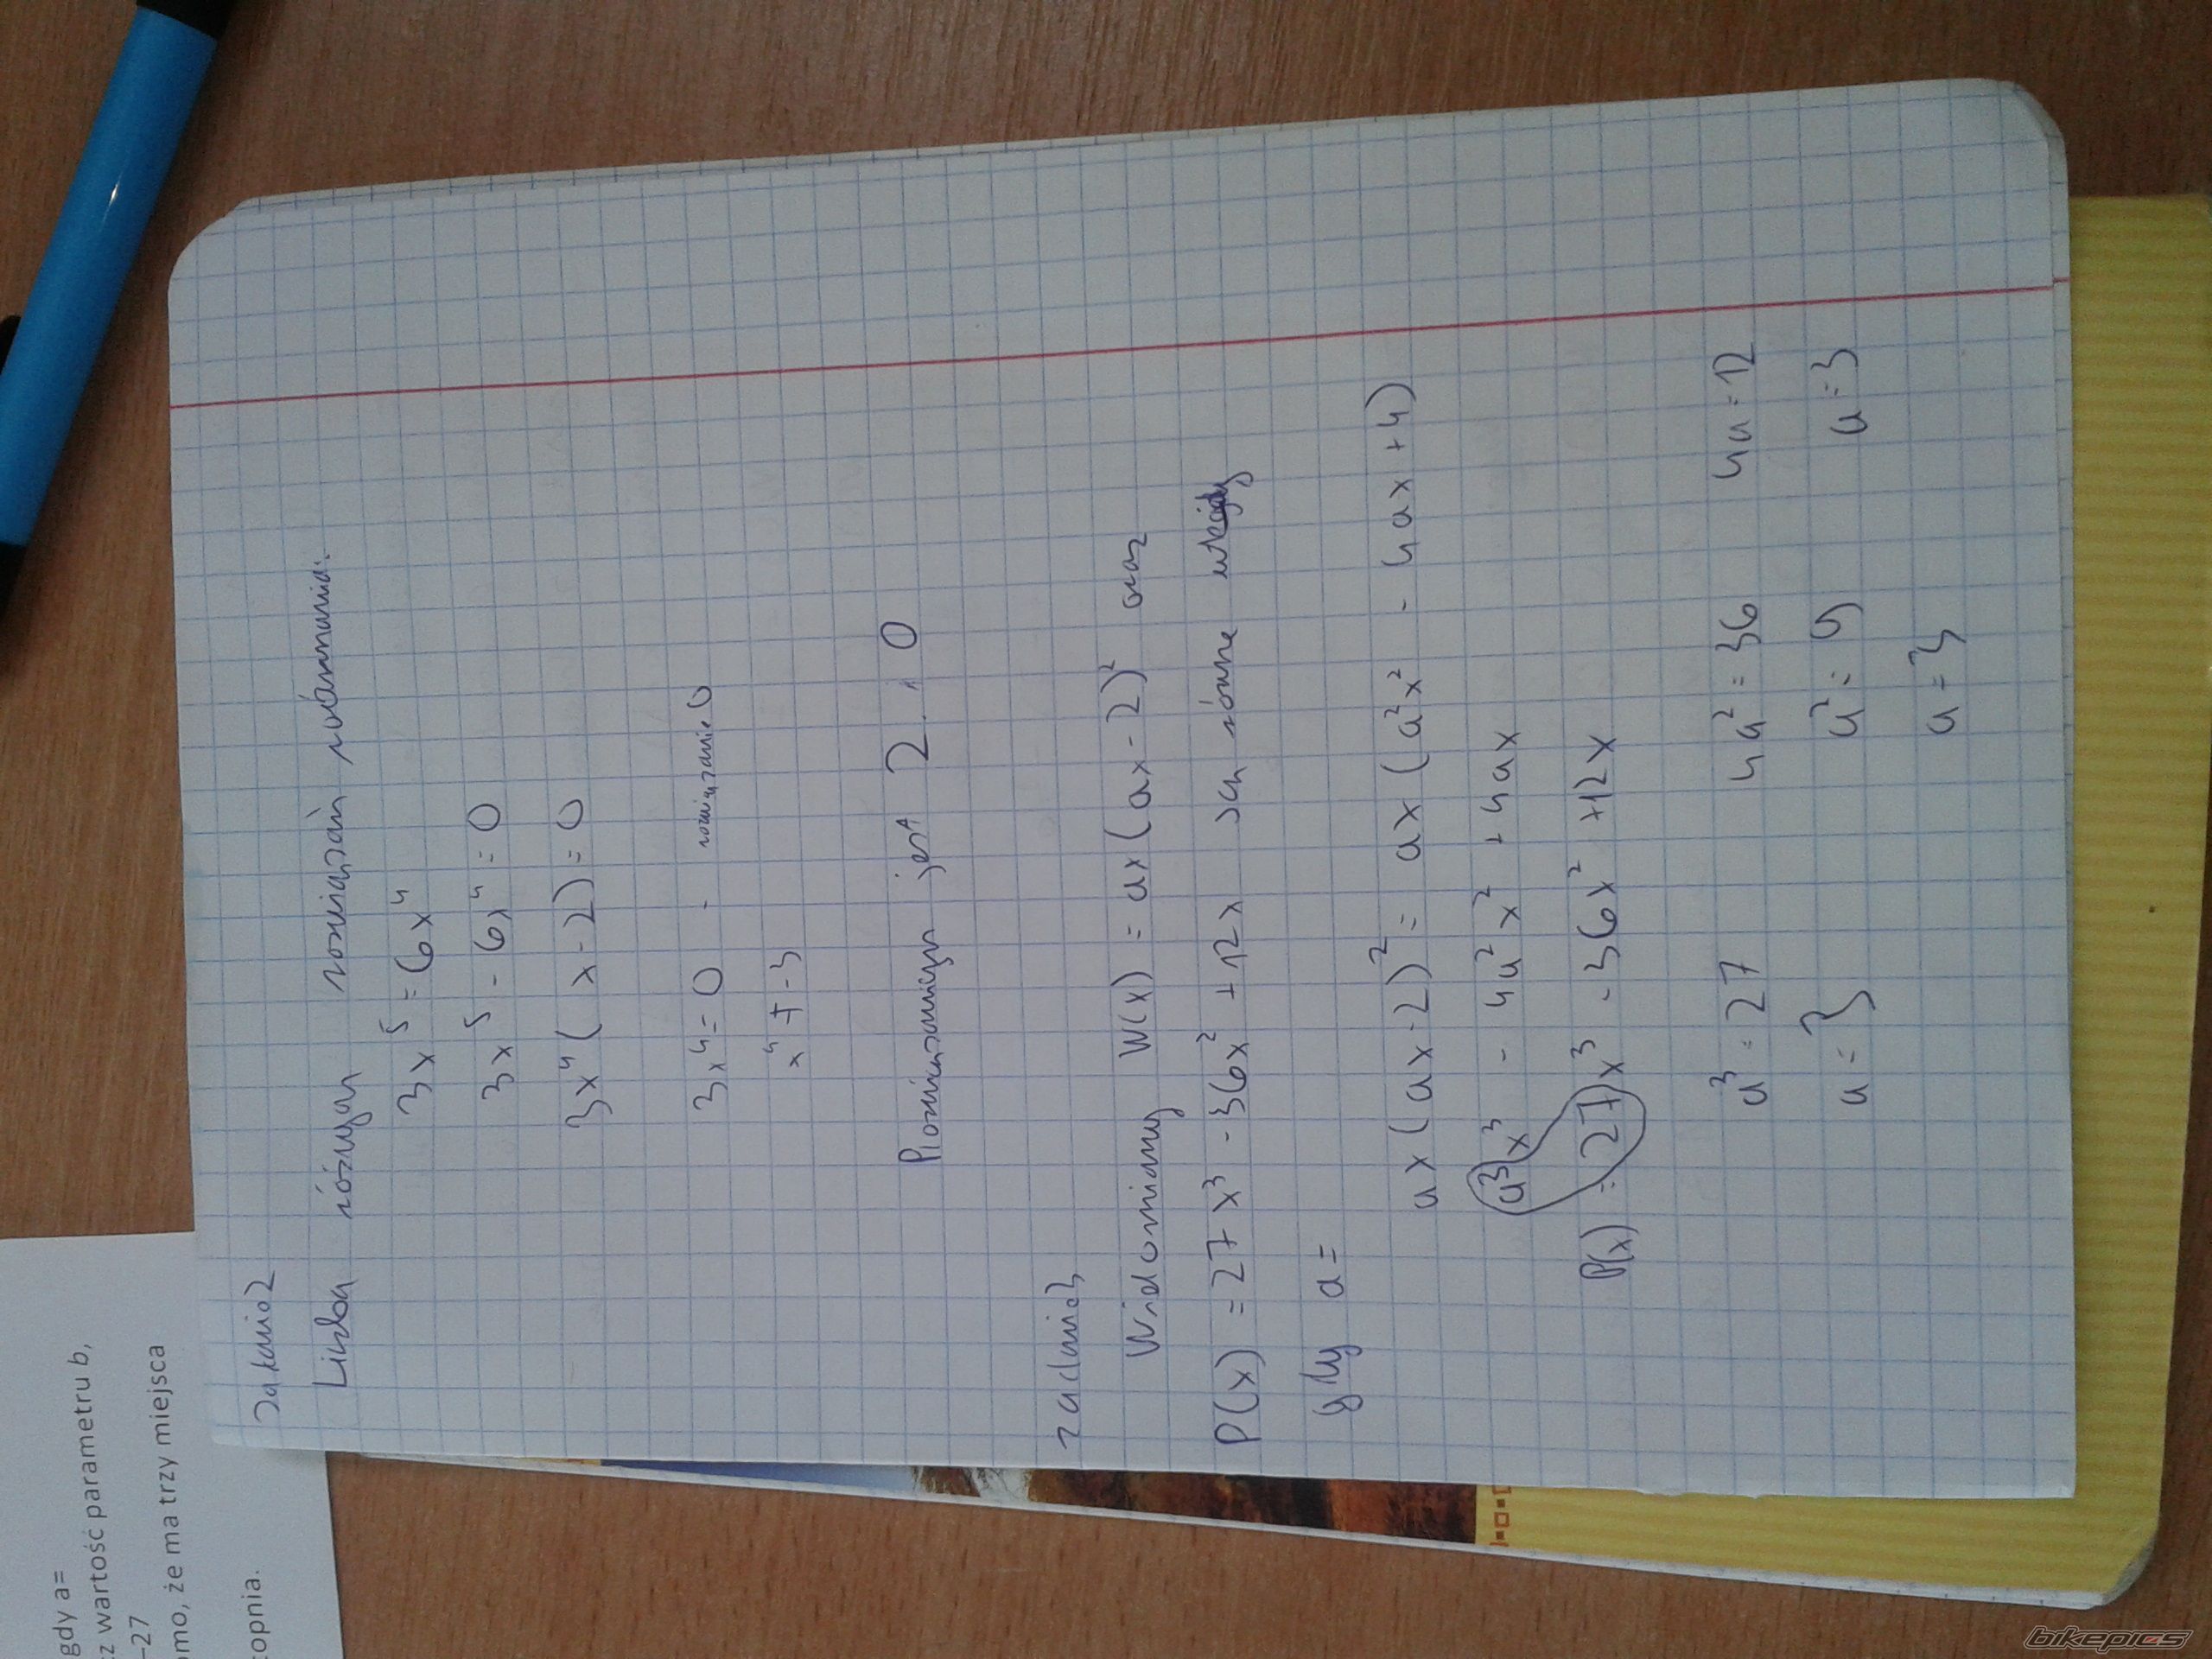 Zadanie 2
Liczba różnych rozwiązań równania.
3x⁵ = 6x⁴
3x⁵ - 6x⁴ = 0
3x⁴ ( x - 2) = 0
3x⁴ = 0 - rozwiązanie 0
jest 2 i 0
zadanie 3
Wielomiany W(x) = ax (ax - 2)² oraz
P(x) = 27x³ - 36x² + 12x są równe wtedy
gdy a =
ax (ax - 2)² = ax (a²x² - 4ax + 4)
a³x³ - 4a²x² + 4ax
P(x) = 27x³ - 36x² + 12x
a³ = 27 4a² = 36 4a = 12
a = 3 a² = 9 a = 3
a = 3
gdy a=
z wartość parametru b,
–27
omo, że ma trzy miejsca
topnia.
bikepics